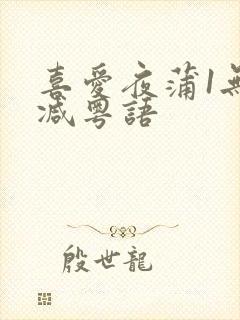 喜愛夜蒲1無
减粤語
殷世龍